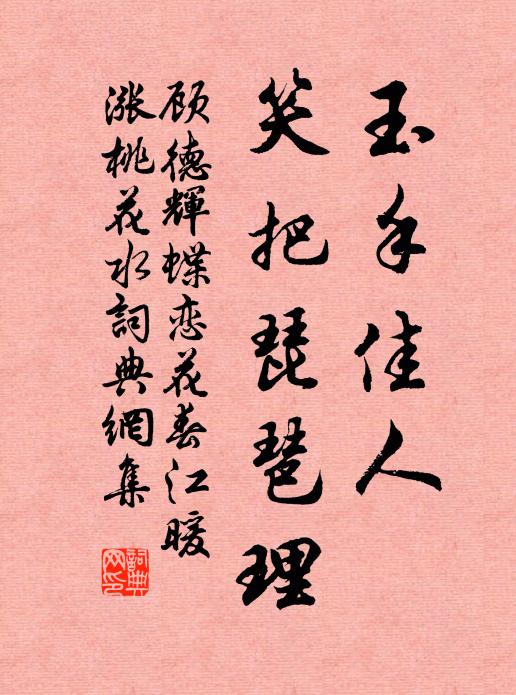 玉手佳人
笑把琵琶理
顾德輝蝶恋花春江暖
涨桃花水詞典網集
詞典网印